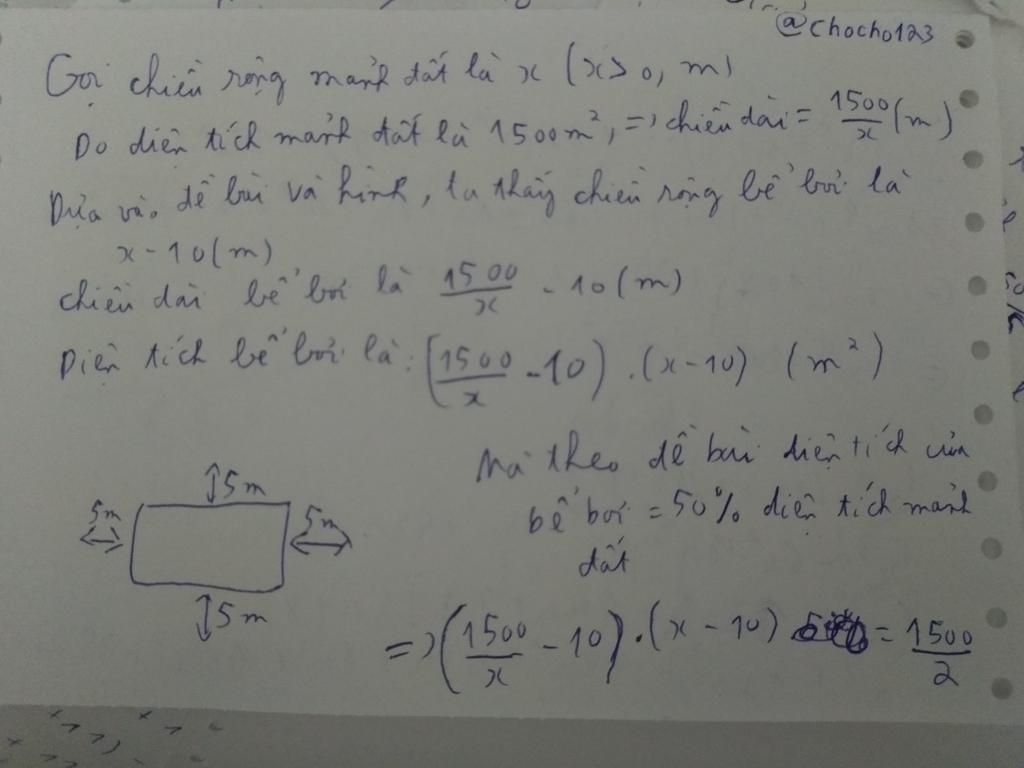 @chocho123
Gọi chiều rộng mảnh đất là x (x>0, m)
Do diện tích mảnh đất là 1500m², => chiều dài = 1500/x (m)
Dựa vào đề bài và hình, ta thấy chiều rộng bể bơi là
x - 10 (m)
chiều dài bể bơi là 1500/x - 10 (m)
Diện tích bể bơi là: (1500/x - 10) . (x - 10) (m²)
Mà theo đề bài diện tích của
bể bơi = 50% diện tích mảnh
đất
5m
5m
5m
5m
=> (1500/x - 10) . (x - 10) = 1500/2